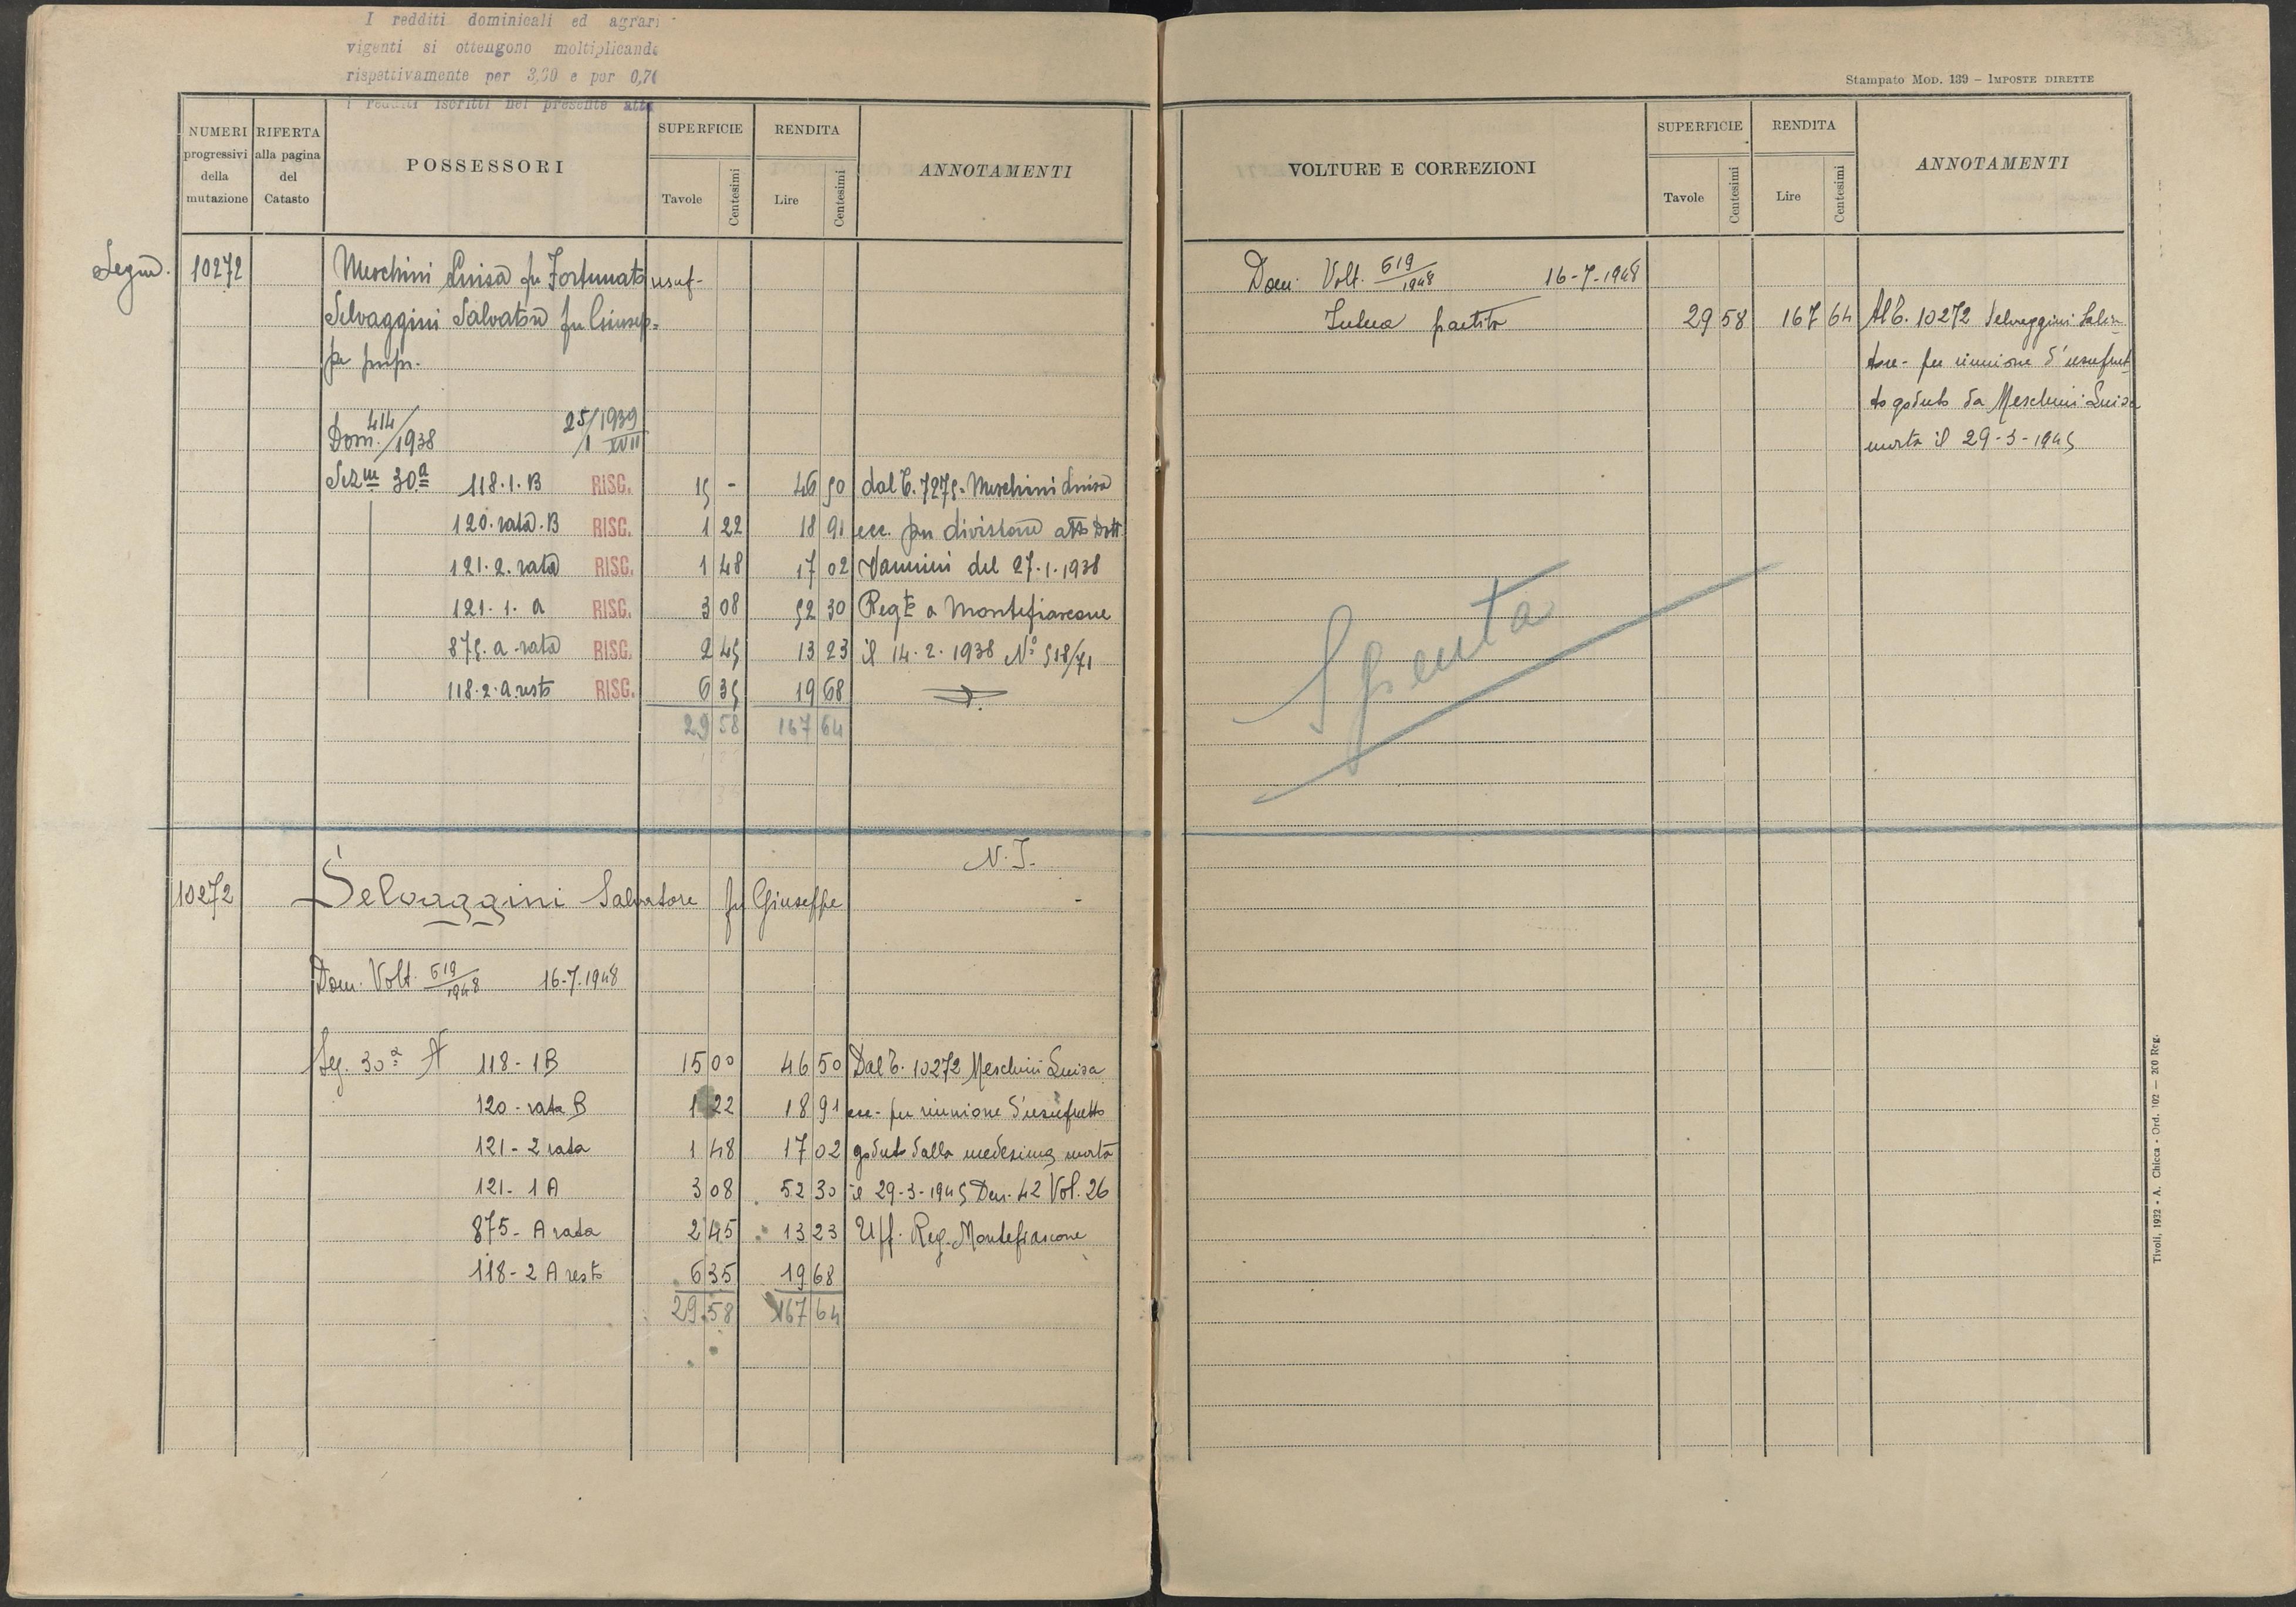 I redditi dominicali ed agrari
vigenti si ottengono moltiplicando
rispettivamente per 3,00 e per 0,70
i redditi iscritti nel presente atto
NUMERI progressivi della mutazione
RIFERTA alla pagina del Catasto
POSSESSORI
SUPERFICIE
Tavole Centesimi
RENDITA
Lire Centesimi
ANNOTAMENTI
Segue. 10272 Meschini Luisa fu Fortunato usuf-
Selvaggini Salvatore fu Giusep-
pe propr.
Dom. 414/1938 25/1 1939 XVII
Sezne 30a 118.1.B RISC. 15 - 46 50 dal C. 7275. Meschini Luisa
120. rata. B RISC. 1 22 18 91 ecc. per divisione atto Dott.
121.2. rata RISC. 1 48 17 02 Vannini del 27.1.1938
121.1.a RISC. 3 08 52 30 Regto a Montefiascone
875.a-rata RISC. 2 45 13 23 il 14.2.1938 No 518/71
118.2.a resto RISC. 6 35 19 68
29 58 167 64
N. I.
10272 Selvaggini Salvatore fu Giuseppe
Dom. Volt. 619/1948 16-7-1948
Sez. 30a A 118-1B 15 00 46 50 Dal C. 10272 Meschini Luisa
120-rata B 1 22 18 91 ecc- per riunione d'usufrutto
121-2 rata 1 48 17 02 goduto dalla medesima morta
121-1A 3 08 52 30 il 29-3-1945 Den. 42 Vol. 26
875-A rata 2 45 13 23 Uff. Reg. Montefiascone
118-2 A resto 6 35 19 68
29 58 167 64
Stampato Mod. 139 – Imposte dirette
VOLTURE E CORREZIONI
SUPERFICIE
Tavole Centesimi
RENDITA
Lire Centesimi
ANNOTAMENTI
Dom. Volt. 619/1948 16-7-1948
Intera partita 29 58 167 64 Al C. 10272 Selvaggini Salva-
tore- per riunione d'usufrut-
to goduto da Meschini Luisa
morta il 29-3-1945
Spenta
Tivoli, 1932 - A. Chicca - Ord. 102 — 200 Reg.